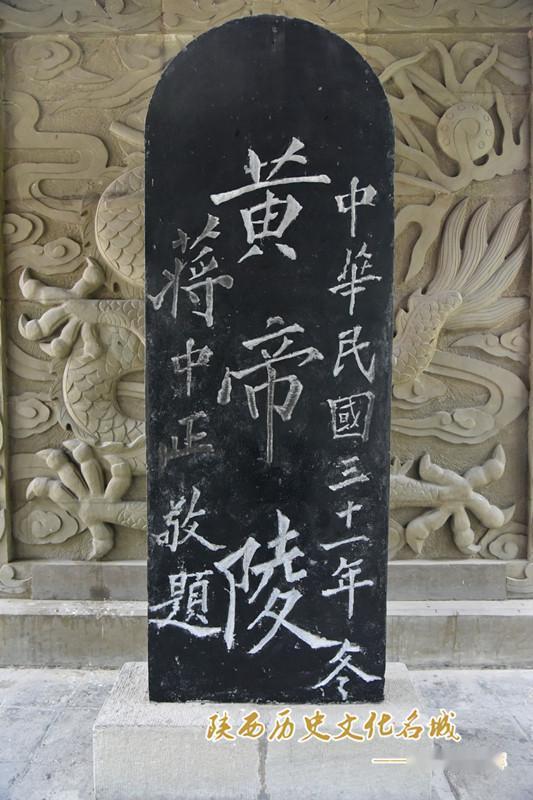 中華民國三十一年冬
黄帝陵
蔣中正敬題
陕西历史文化名城